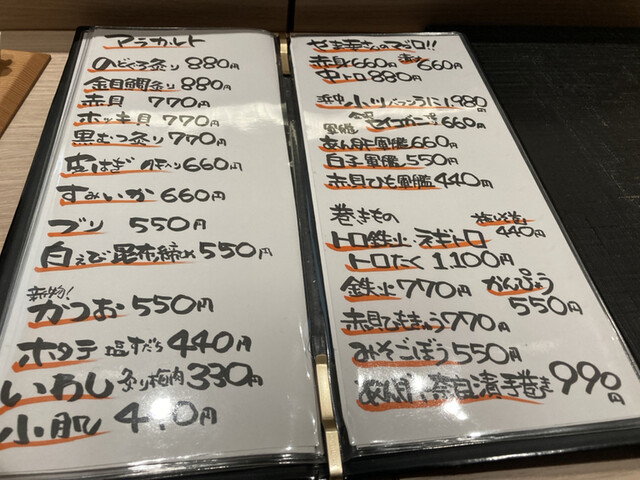 アラカルト
のどぐろ炙り 880円
金目鯛炙り 880円
赤貝 770円
ホッキ貝 770円
黒むつ炙り 770円
皮はぎ 660円
すみいか 660円
ブリ 550円
白えび昆布締め 550円
新物!
かつお 550円
ホタテ 塩すだち 440円
いわし 炙り梅肉 330円
小肌 円
やま幸さんのマグロ!!
赤身 660円 660円
中トロ 880円
浜中小川 うに 1,980円
セイコガニ 660円
軍艦
あん肝軍艦 660円
白子軍艦 550円
赤貝ひも軍艦 440円
巻きもの
梅しそ巻 440円
トロ鉄火・ネギトロ
トロたく 1,100円
鉄火 770円
かんぴょう 550円
赤貝ひもきゅう 770円
みそごぼう 550円
あん肝、奈良漬手巻き 990円